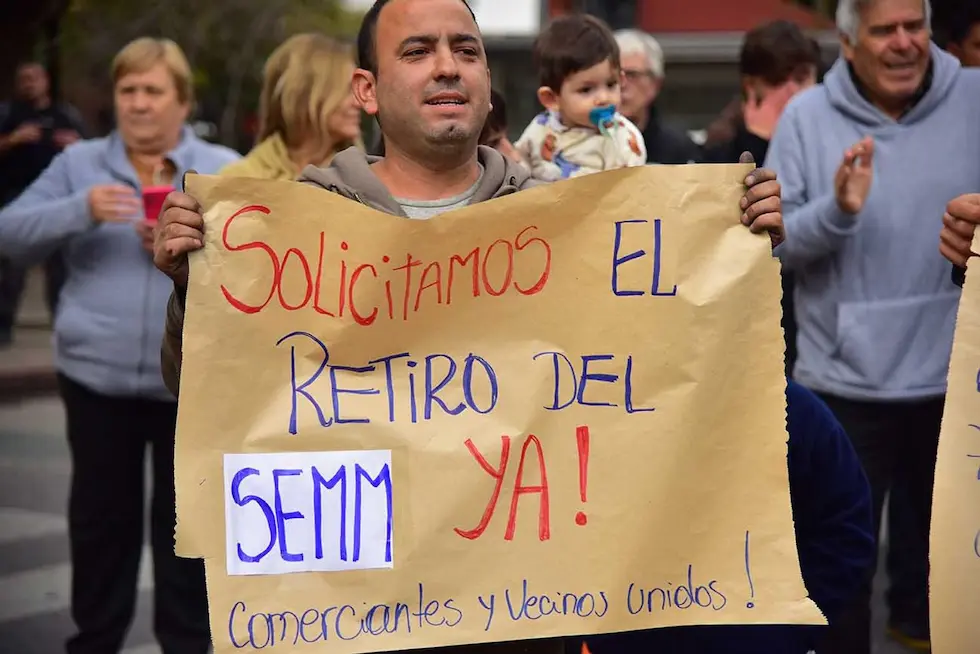 SOLiCitAMOS EL
RETiRO DEL
SEMM YA!
Comerciantes y Vecinos unidos!